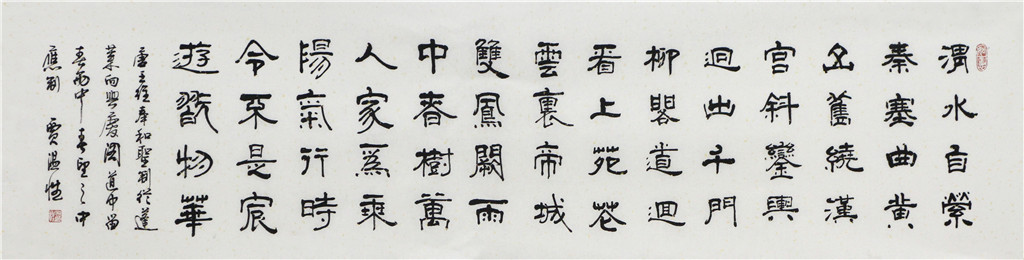 渭水自縈
秦塞曲黄
山舊繞漢
宮斜鑾輿
迥出千門
柳閣道迴
看上苑花
雲裏帝城
雙鳳闕雨
中春樹萬
人家爲乘
陽氣行時
令不是宸
遊翫物華
唐王維奉和聖制從蓬
萊向興慶閣道中留
春雨中春望之中
應制 賈